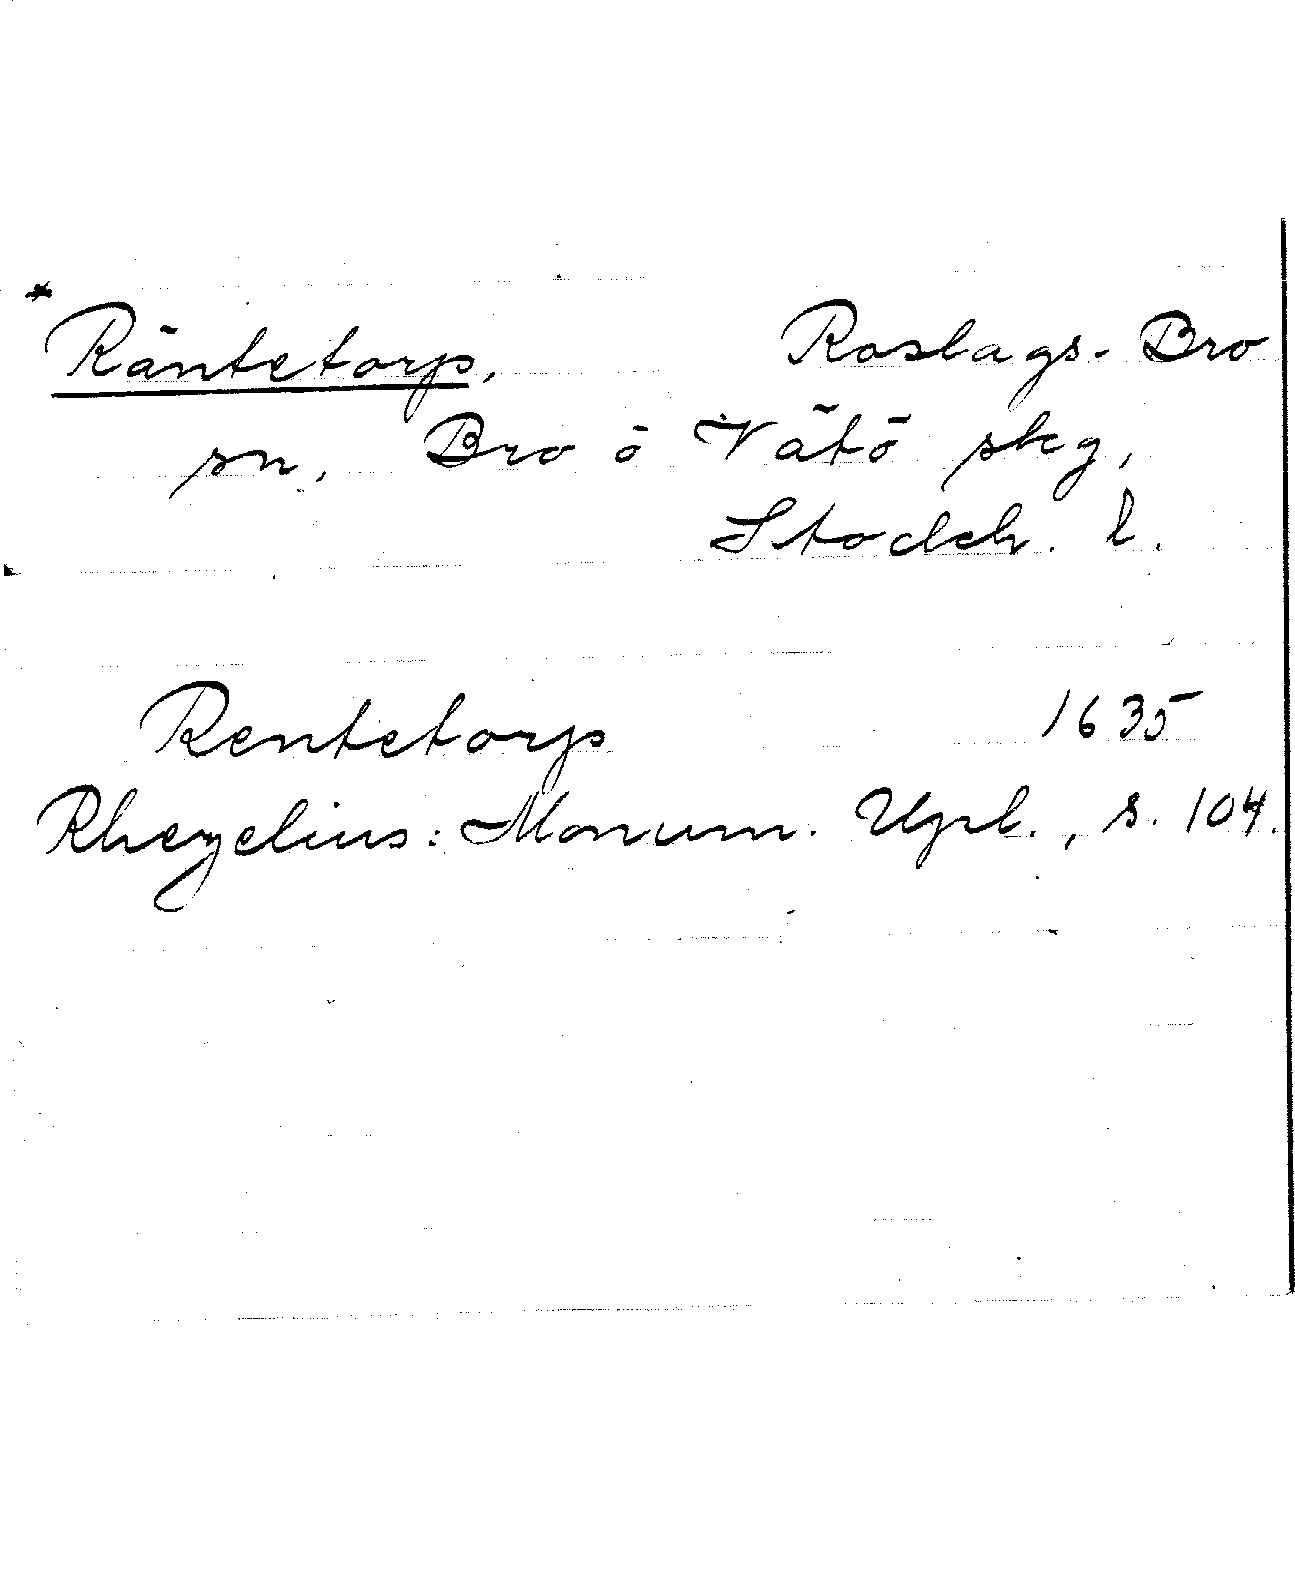 * Räntetorp, Roslags-Bro
sn, Bro o Vätö skg,
Stockh. l.
Rentetorp 1635
Rhezelius: Monum. Upl., s. 104.